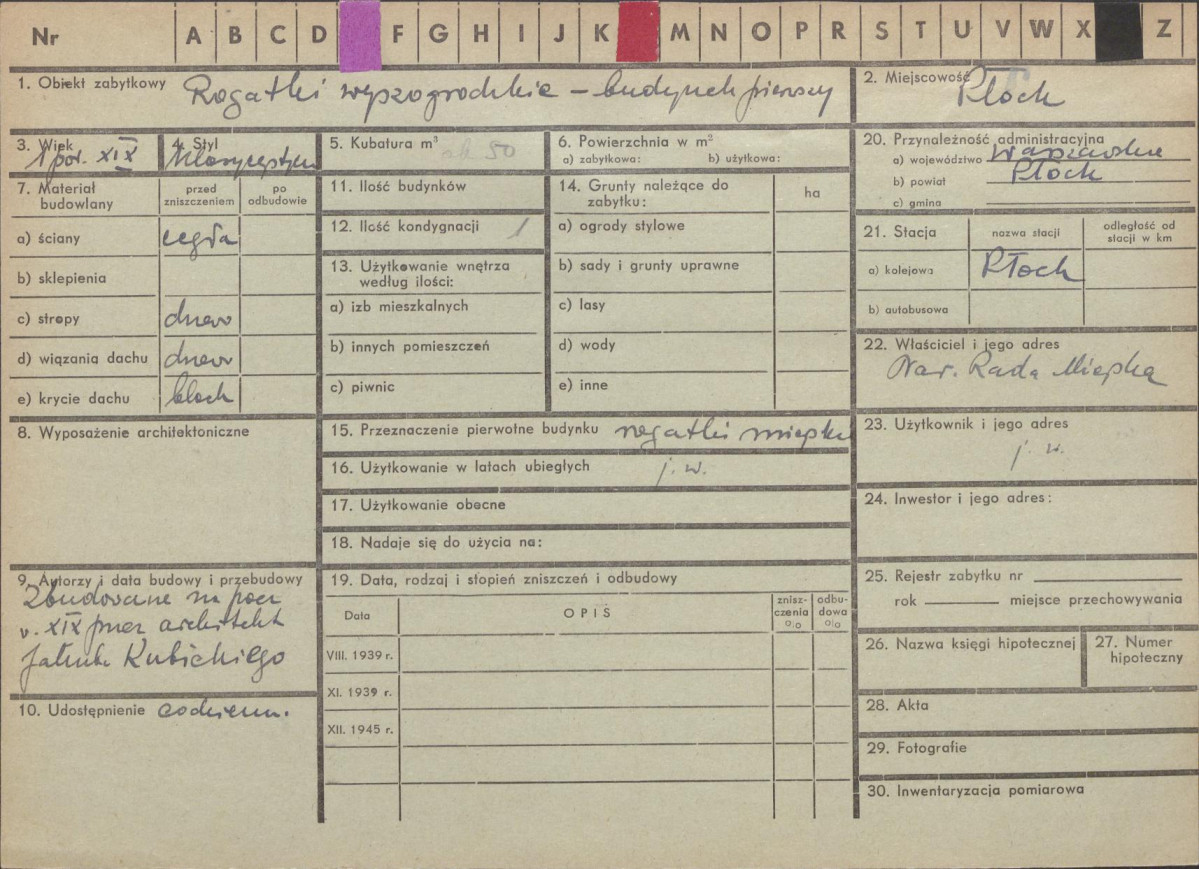 Nr A B C D F G H I J K M N O P R S T U V W X Z
1. Obiekt zabytkowy Rogatki wyszogrodzkie – budynek pierwszy
2. Miejscowość Płock
3. Wiek 1 poł. XIX
4. Styl klasycystyczn
5. Kubatura m³ ok 50
6. Powierzchnia w m²
a) zabytkowa: b) użytkowa:
7. Materiał budowlany
przed zniszczeniem
po odbudowie
a) ściany cegła
b) sklepienia
c) stropy drewn
d) wiązania dachu drewn
e) krycie dachu blach
8. Wyposażenie architektoniczne
9. Autorzy i data budowy i przebudowy
Zbudowane na pocz
w. XIX przez architekt
Jakuba Kubickiego
10. Udostępnienie codzienn.
11. Ilość budynków
12. Ilość kondygnacji 1
13. Użytkowanie wnętrza
według ilości:
a) izb mieszkalnych
b) innych pomieszczeń
c) piwnic
14. Grunty należące do
zabytku:
ha
a) ogrody stylowe
b) sady i grunty uprawne
c) lasy
d) wody
e) inne
15. Przeznaczenie pierwotne budynku rogatki miejskie
16. Użytkowanie w latach ubiegłych j. w.
17. Użytkowanie obecne
18. Nadaje się do użycia na:
19. Data, rodzaj i stopień zniszczeń i odbudowy
Data OPIS
znisz-
czenia
%
odbu-
dowa
%
VIII. 1939 r.
XI. 1939 r.
XII. 1945 r.
20. Przynależność administracyjna
a) województwo warszawskie
b) powiat Płock
c) gmina
21. Stacja
nazwa stacji
odległość od
stacji w km
a) kolejowa Płock
b) autobusowa
22. Właściciel i jego adres
Nar. Rada Miejska
23. Użytkownik i jego adres
j. w.
24. Inwestor i jego adres:
25. Rejestr zabytku nr
rok miejsce przechowywania
26. Nazwa księgi hipotecznej
27. Numer
hipoteczny
28. Akta
29. Fotografie
30. Inwentaryzacja pomiarowa